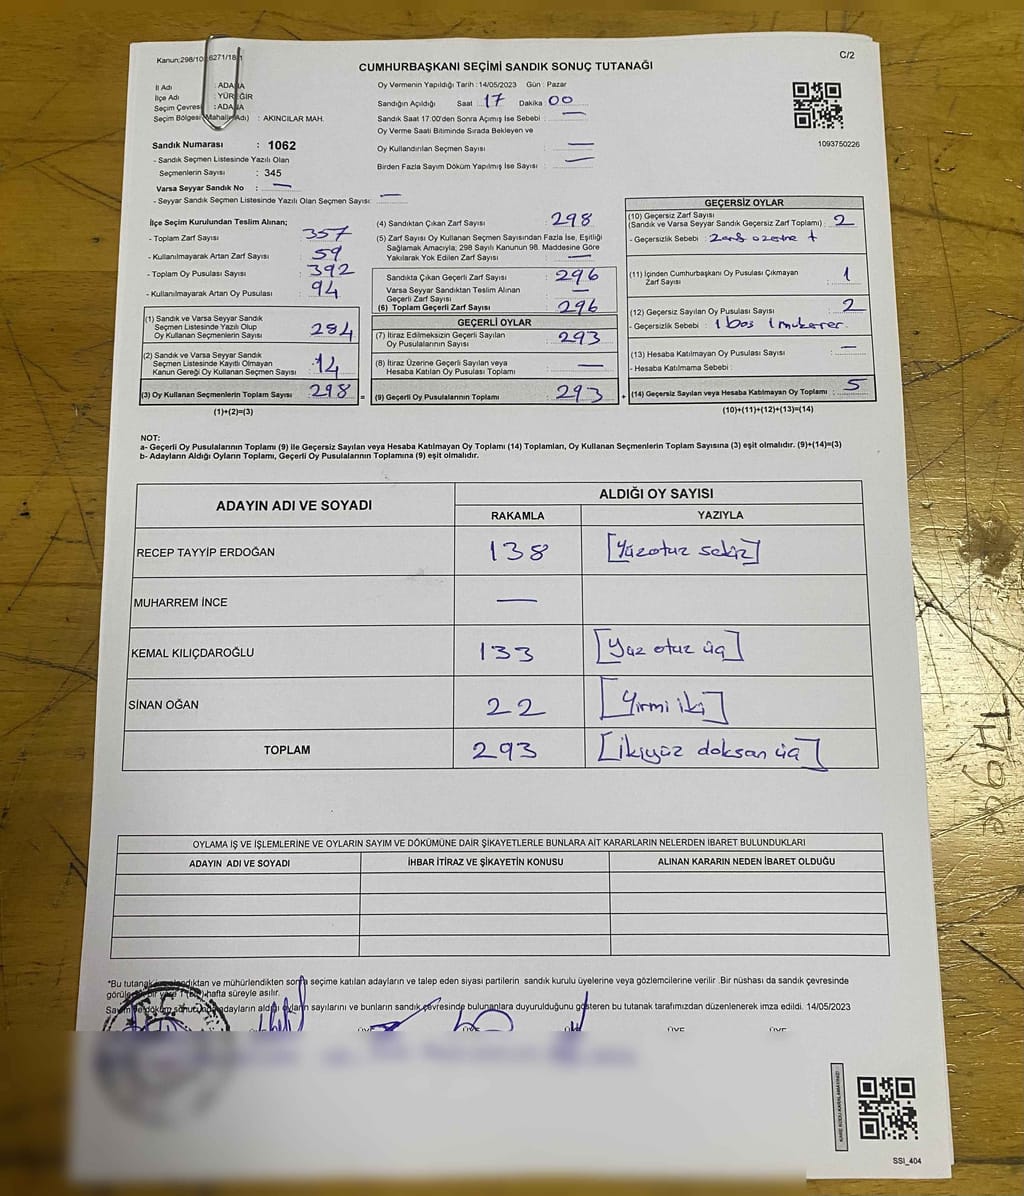 C/2
Kanun:298/10 6271/18/1
CUMHURBAŞKANI SEÇİMİ SANDIK SONUÇ TUTANAĞI
İl Adı : ADANA
İlçe Adı : YÜREĞİR
Seçim Çevresi : ADANA
Seçim Bölgesi (Mahalle Adı) : AKINCILAR MAH.
Sandık Numarası : 1062
- Sandık Seçmen Listesinde Yazılı Olan
Seçmenlerin Sayısı : 345
Varsa Seyyar Sandık No : —
- Seyyar Sandık Seçmen Listesinde Yazılı Olan Seçmen Sayısı: —
Oy Vermenin Yapıldığı Tarih : 14/05/2023 Gün : Pazar
Sandığın Açıldığı Saat 17 Dakika : 00
Sandık Saat 17:00'den Sonra Açımış İse Sebebi : —
Oy Verme Saati Bitiminde Sırada Bekleyen ve
Oy Kullandırılan Seçmen Sayısı : —
Birden Fazla Sayım Döküm Yapılmış İse Sayısı : —
1093750226
İlçe Seçim Kurulundan Teslim Alınan;
- Toplam Zarf Sayısı : 357
- Kullanılmayarak Artan Zarf Sayısı : 59
- Toplam Oy Pusulası Sayısı : 392
- Kullanılmayarak Artan Oy Pusulası : 94
(1) Sandık ve Varsa Seyyar Sandık
Seçmen Listesinde Yazılı Olup
Oy Kullanan Seçmenlerin Sayısı : 284
(2) Sandık ve Varsa Seyyar Sandık
Seçmen Listesinde Kayıtlı Olmayan
Kanun Gereği Oy Kullanan Seçmen Sayısı : 14
(3) Oy Kullanan Seçmenlerin Toplam Sayısı : 298 =
(1)+(2)=(3)
(4) Sandıktan Çıkan Zarf Sayısı : 298
(5) Zarf Sayısı Oy Kullanan Seçmen Sayısından Fazla İse, Eşitliği
Sağlamak Amacıyla; 298 Sayılı Kanunun 98. Maddesine Göre
Yakılarak Yok Edilen Zarf Sayısı : —
Sandıkta Çıkan Geçerli Zarf Sayısı : 296
Varsa Seyyar Sandıktan Teslim Alınan
Geçerli Zarf Sayısı : —
(6) Toplam Geçerli Zarf Sayısı : 296
GEÇERLİ OYLAR
(7) İtiraz Edilmeksizin Geçerli Sayılan
Oy Pusulalarının Sayısı : 293
(8) İtiraz Üzerine Geçerli Sayılan veya
Hesaba Katılan Oy Pusulası Toplamı : —
(9) Geçerli Oy Pusulalarının Toplamı : 293 +
GEÇERSİZ OYLAR
(10) Geçersiz Zarf Sayısı
(Sandık ve Varsa Seyyar Sandık Geçersiz Zarf Toplamı) : 2
- Geçersizlik Sebebi :
(11) İçinden Cumhurbaşkanı Oy Pusulası Çıkmayan
Zarf Sayısı : 1
(12) Geçersiz Sayılan Oy Pusulası Sayısı : 2
- Geçersizlik Sebebi : 1 boş 1 mükerer.
(13) Hesaba Katılmayan Oy Pusulası Sayısı : —
- Hesaba Katılmama Sebebi :
(14) Geçersiz Sayılan veya Hesaba Katılmayan Oy Toplamı : 5
(10)+(11)+(12)+(13)=(14)
NOT:
a- Geçerli Oy Pusulalarının Toplamı (9) ile Geçersiz Sayılan veya Hesaba Katılmayan Oy Toplamı (14) Toplamları, Oy Kullanan Seçmenlerin Toplam Sayısına (3) eşit olmalıdır. (9)+(14)=(3)
b- Adayların Aldığı Oyların Toplamı, Geçerli Oy Pusulalarının Toplamına (9) eşit olmalıdır.
ADAYIN ADI VE SOYADI ALDIĞI OY SAYISI
RAKAMLA YAZIYLA
RECEP TAYYİP ERDOĞAN 138 [Yüzotuz sekiz]
MUHARREM İNCE —
KEMAL KILIÇDAROĞLU 133 [Yüz otuz üç]
SİNAN OĞAN 22 [Yirmi iki]
TOPLAM 293 [İkiyüz doksan üç]
OYLAMA İŞ VE İŞLEMLERİNE VE OYLARIN SAYIM VE DÖKÜMÜNE DAİR ŞİKAYETLERLE BUNLARA AİT KARARLARIN NELERDEN İBARET BULUNDUKLARI
ADAYIN ADI VE SOYADI İHBAR İTİRAZ VE ŞİKAYETİN KONUSU ALINAN KARARIN NEDEN İBARET OLDUĞU
*Bu tutanak ve mühürlendikten sonra seçime katılan adayların ve talep eden siyasi partilerin sandık kurulu üyelerine veya gözlemcilerine verilir .Bir nüshası da sandık çevresinde
görülen bir yere 1 (bir) hafta süreyle asılır.
Sayım ve döküm adayların aldığı oyların sayılarını ve bunların sandık çevresinde bulunanlara duyurulduğunu gösteren bu tutanak tarafımızdan düzenlenerek imza edildi. 14/05/2023
SSI_404